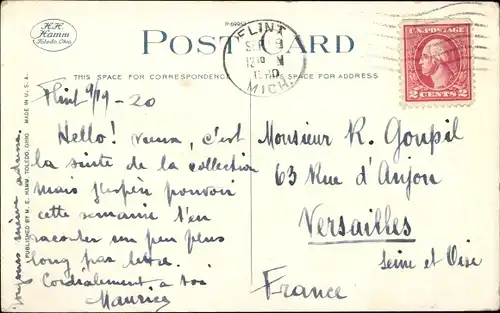 H.H. Hamm
Toledo, Ohio.
POST CARD
FLINT
SEP 9
12 30 M
1920
MICH.
U.S. POSTAGE
2 CENTS 2
THIS SPACE FOR CORRESPONDENCE
THIS SPACE FOR ADDRESS
PUBLISHED BY H. E. HAMM, TOLEDO, OHIO. MADE IN U. S. A.
Flint 9/19-20
Hello! Vieux, c'est
la suite de la collection
mais j'espère pouvoir
cette semaine t'en
raconter un peu plus
long par lettre.
Cordialement à toi
Maurice
toujours même adresse
Monsieur R. Goupil
63 Rue d'Anjou
Versailles
Seine et Oise
France